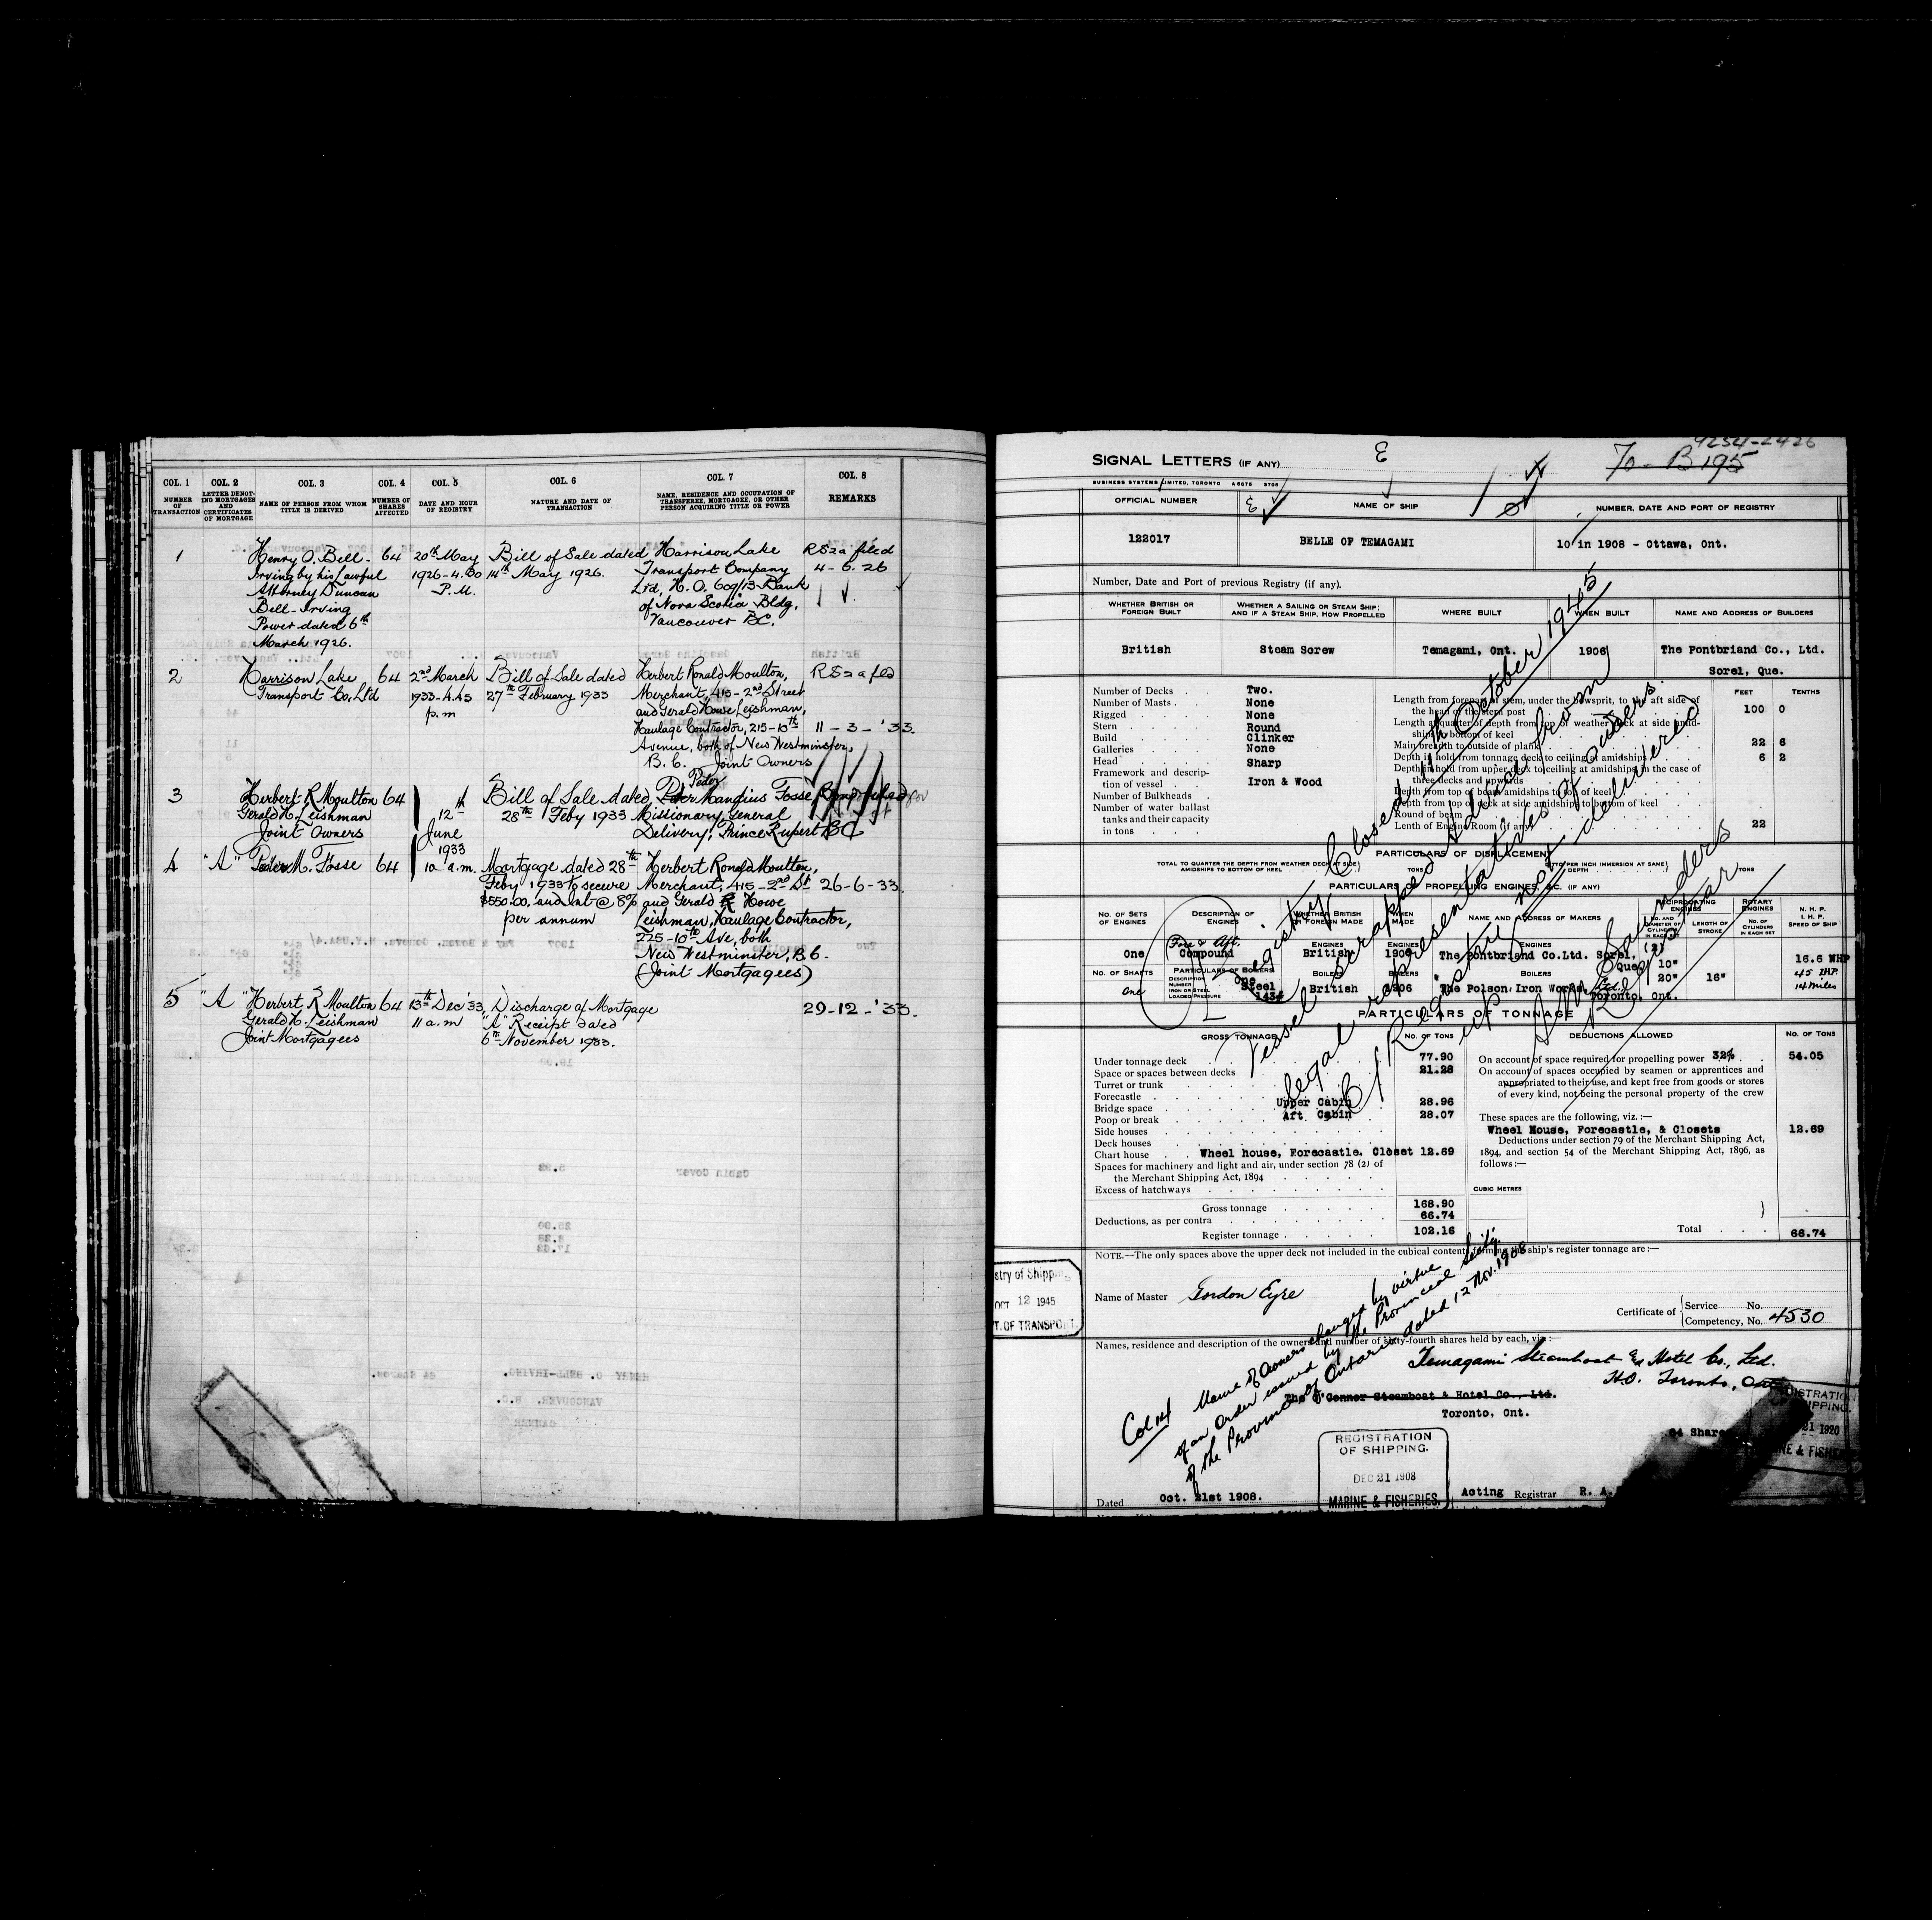 COL. 1
NUMBER OF TRANSACTION
COL. 2
LETTER DENOTING MORTGAGES AND CERTIFICATES OF MORTGAGE
COL. 3
NAME OF PERSON FROM WHOM TITLE IS DERIVED
COL. 4
NUMBER OF SHARES AFFECTED
COL. 5
DATE AND HOUR OF REGISTRY
COL. 6
NATURE AND DATE OF TRANSACTION
COL. 7
NAME, RESIDENCE AND OCCUPATION OF TRANSFEREE, MORTGAGEE, OR OTHER PERSON ACQUIRING TITLE OR POWER
COL. 8
REMARKS
1
Henry O. Bell-
Irving by his Lawful
Attorney Duncan
Bell-Irving
Power dated 6th
March 1926.
64
20th May
1926-4.30
P.M.
Bill of Sale dated
14th May 1926.
Harrison Lake
Transport Company
Ltd, H.O. 609/13 Bank
of Nova Scotia Bldg,
Vancouver BC.
RS2a filed
4-6-26
2
Harrison Lake
Transport Co, Ltd
64
2nd March
1933-4.45
p.m
Bill of Sale dated
27th February 1933
Herbert Ronald Moulton,
Merchant, 415-2nd Street
and Gerald Howe Leishman,
Haulage Contractor, 215-10th
Avenue, both of New Westminster,
B.C. Joint Owners
RS2a fld
11-3-'33.
3
Herbert R Moulton
Gerald H. Leishman
Joint Owners
64
12th
June
1933
Bill of Sale dated
28th Feby 1933
Peder
Mangius Fosse
Missionary, General
Delivery, Prince Rupert BC
4
"A"
Peder M. Fosse
64
10 a.m.
Mortgage dated 28th
Feby 1933 to secure
$550.00, and Int @ 8%
per annum
Herbert Ronald Moulton,
Merchant, 415-2nd St
and Gerald Howe
Leishman, Haulage Contractor,
225-10th Ave, both
New Westminster, BC.
(Joint Mortgagees)
26-6-33.
5
"A"
Herbert R Moulton
Gerald H. Leishman
Joint Mortgagees
64
13th Dec '33
11 a.m
Discharge of Mortgage
"A" Receipt dated
6th November 1933.
29-12-'33.
SIGNAL LETTERS (IF ANY)
E
To - B195
BUSINESS SYSTEMS LIMITED, TORONTO
OFFICIAL NUMBER
NAME OF SHIP
NUMBER, DATE AND PORT OF REGISTRY
122017
BELLE OF TEMAGAMI
10 in 1908 - Ottawa, Ont.
Number, Date and Port of previous Registry (if any).
WHETHER BRITISH OR FOREIGN BUILT
WHETHER A SAILING OR STEAM SHIP; AND IF A STEAM SHIP, HOW PROPELLED
WHERE BUILT
WHEN BUILT
NAME AND ADDRESS OF BUILDERS
British
Steam Screw
Temagami, Ont.
1906
The Pontbriand Co., Ltd.
Sorel, Que.
Number of Decks Two.
Number of Masts None
Rigged None
Stern Round
Build Clinker
Galleries None
Head Sharp
Framework and description of vessel Iron & Wood
Number of Bulkheads
Number of water ballast tanks and their capacity in tons
FEET
TENTHS
Length from forepart of stem, under the bowsprit, to the aft side of the head of the stern post 100 0
Length at quarter of depth from top of weather deck at side amidships to bottom of keel
Main breadth to outside of plank 22 6
Depth in hold from tonnage deck to ceiling at amidships 6 2
Depth in hold from upper deck to ceiling at amidships, in the case of three decks and upwards
Depth from top of beam amidships to top of keel
Depth from top of deck at side amidships to bottom of keel
Round of beam
Lenth of Engine Room (if any) 22
PARTICULARS OF DISPLACEMENT
TOTAL TO QUARTER THE DEPTH FROM WEATHER DECK AT SIDE AMIDSHIPS TO BOTTOM OF KEEL
TONS
DITTO PER INCH IMMERSION AT SAME DEPTH
TONS
PARTICULARS OF PROPELLING ENGINES, &C. (IF ANY)
NO. OF SETS OF ENGINES
DESCRIPTION OF ENGINES
WHETHER BRITISH OR FOREIGN MADE
WHEN MADE
NAME AND ADDRESS OF MAKERS
RECIPROCATING ENGINES
NO. AND DIAMETER OF CYLINDERS IN EACH SET
LENGTH OF STROKE
ROTARY ENGINES
NO. OF CYLINDERS IN EACH SET
N. H. P.
I. H. P.
SPEED OF SHIP
One
Fore & Aft.
Compound
ENGINES
British
ENGINES
1906
ENGINES
The Pontbriand Co.Ltd. Sorel,
Que.
(2)
10"
20"
16"
16.6 NHP
45 IHP.
14 miles
NO. OF SHAFTS
One
PARTICULARS OF BOILERS
DESCRIPTION
NUMBER
IRON OR STEEL
LOADED PRESSURE
One
Steel
143#
BOILERS
British
BOILERS
1906
BOILERS
The Polson Iron Works Ltd.
Toronto, Ont.
PARTICULARS OF TONNAGE
GROSS TONNAGE
NO. OF TONS
DEDUCTIONS ALLOWED
NO. OF TONS
Under tonnage deck 77.90
Space or spaces between decks 21.28
Turret or trunk
Forecastle
Bridge space Upper Cabin 28.96
Poop or break Aft Cabin 28.07
Side houses
Deck houses
Chart house Wheel house, Forecastle. Closet 12.69
Spaces for machinery and light and air, under section 78 (2) of the Merchant Shipping Act, 1894
Excess of hatchways
CUBIC METRES
Gross tonnage 168.90
Deductions, as per contra 66.74
Register tonnage 102.16
On account of space required for propelling power 32% 54.05
On account of spaces occupied by seamen or apprentices and appropriated to their use, and kept free from goods or stores of every kind, not being the personal property of the crew
These spaces are the following, viz.:—
Wheel House, Forecastle, & Closets 12.69
Deductions under section 79 of the Merchant Shipping Act, 1894, and section 54 of the Merchant Shipping Act, 1896, as follows:—
Total 66.74
NOTE.—The only spaces above the upper deck not included in the cubical contents forming the ship's register tonnage are:—
Name of Master Gordon Eyre
Certificate of Service No.
Competency, No. 4530
Names, residence and description of the owners and number of sixty-fourth shares held by each, viz:—
Temagami Steamboat & Hotel Co., Ltd.
H.O. Toronto, Ont
The O'Connor Steamboat & Hotel Co., Ltd.
Toronto, Ont.
64 Shares
Dated Oct. 21st 1908.
Acting Registrar R. A.
REGISTRATION
OF SHIPPING.
DEC 21 1908
MARINE & FISHERIES.
stry of Shipping
OCT 12 1945
T. OF TRANSPORT.
Registry Closed 11th October 1945
Vessel scrapped advice from
legal representatives of owners.
C/Registry not delivered
up
Saunders
Registrar
Name of Owners changed by virtue
of an Order issued by the Provincial Secty.
of the Province of Ontario dated 12 Nov. 1908